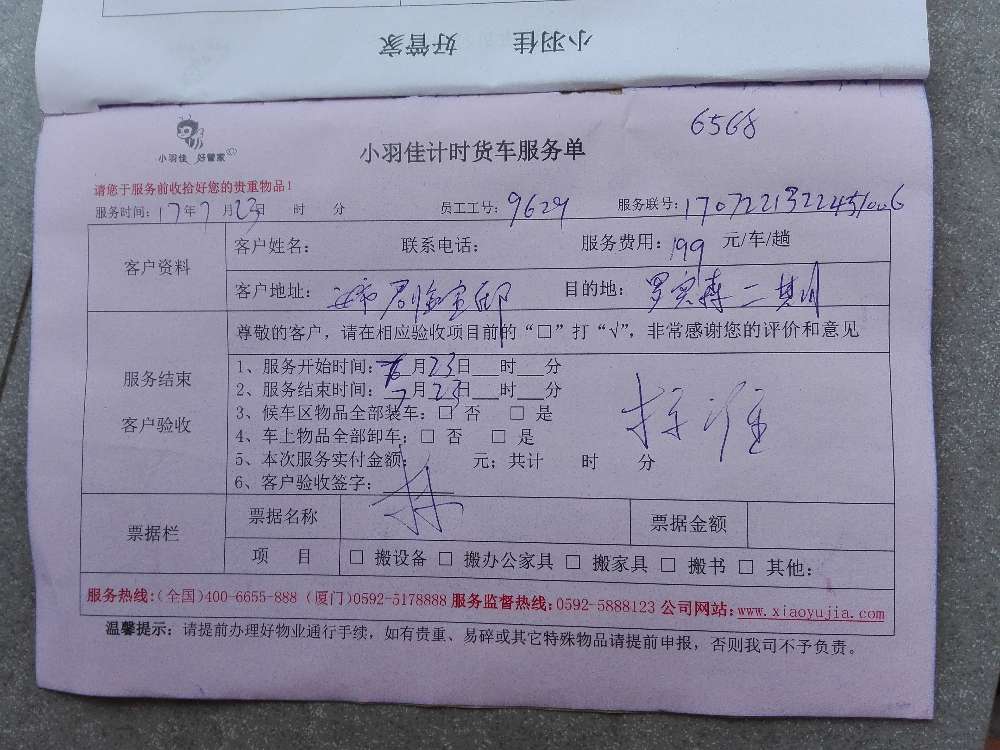 小羽佳 好管家
6568
小羽佳 好管家
小羽佳计时货车服务单
请您于服务前收拾好您的贵重物品！
服务时间：17年7月23日 时 分 员工工号：9629 服务联号：
客户资料
客户姓名： 联系电话： 服务费用：199 元/车/趟
客户地址： 君临宝邸 目的地： 罗宾森二期
尊敬的客户，请在相应验收项目前的“□”打“√”，非常感谢您的评价和意见
服务结束
客户验收
1、服务开始时间：月23日___时___分
2、服务结束时间：7月23日___时___分
3、候车区物品全部装车：□ 否 □ 是
4、车上物品全部卸车：□ 否 □ 是
5、本次服务实付金额： 元；共计 时 分
6、客户验收签字：林
票据栏
票据名称 票据金额
项 目 □ 搬设备 □ 搬办公家具 □ 搬家具 □ 搬书 □ 其他：
服务热线:(全国)400-6655-888 (厦门)0592-5178888 服务监督热线:0592-5888123 公司网站:www.xiaoyujia.com
温馨提示：请提前办理好物业通行手续，如有贵重、易碎或其它特殊物品请提前申报，否则我司不予负责。